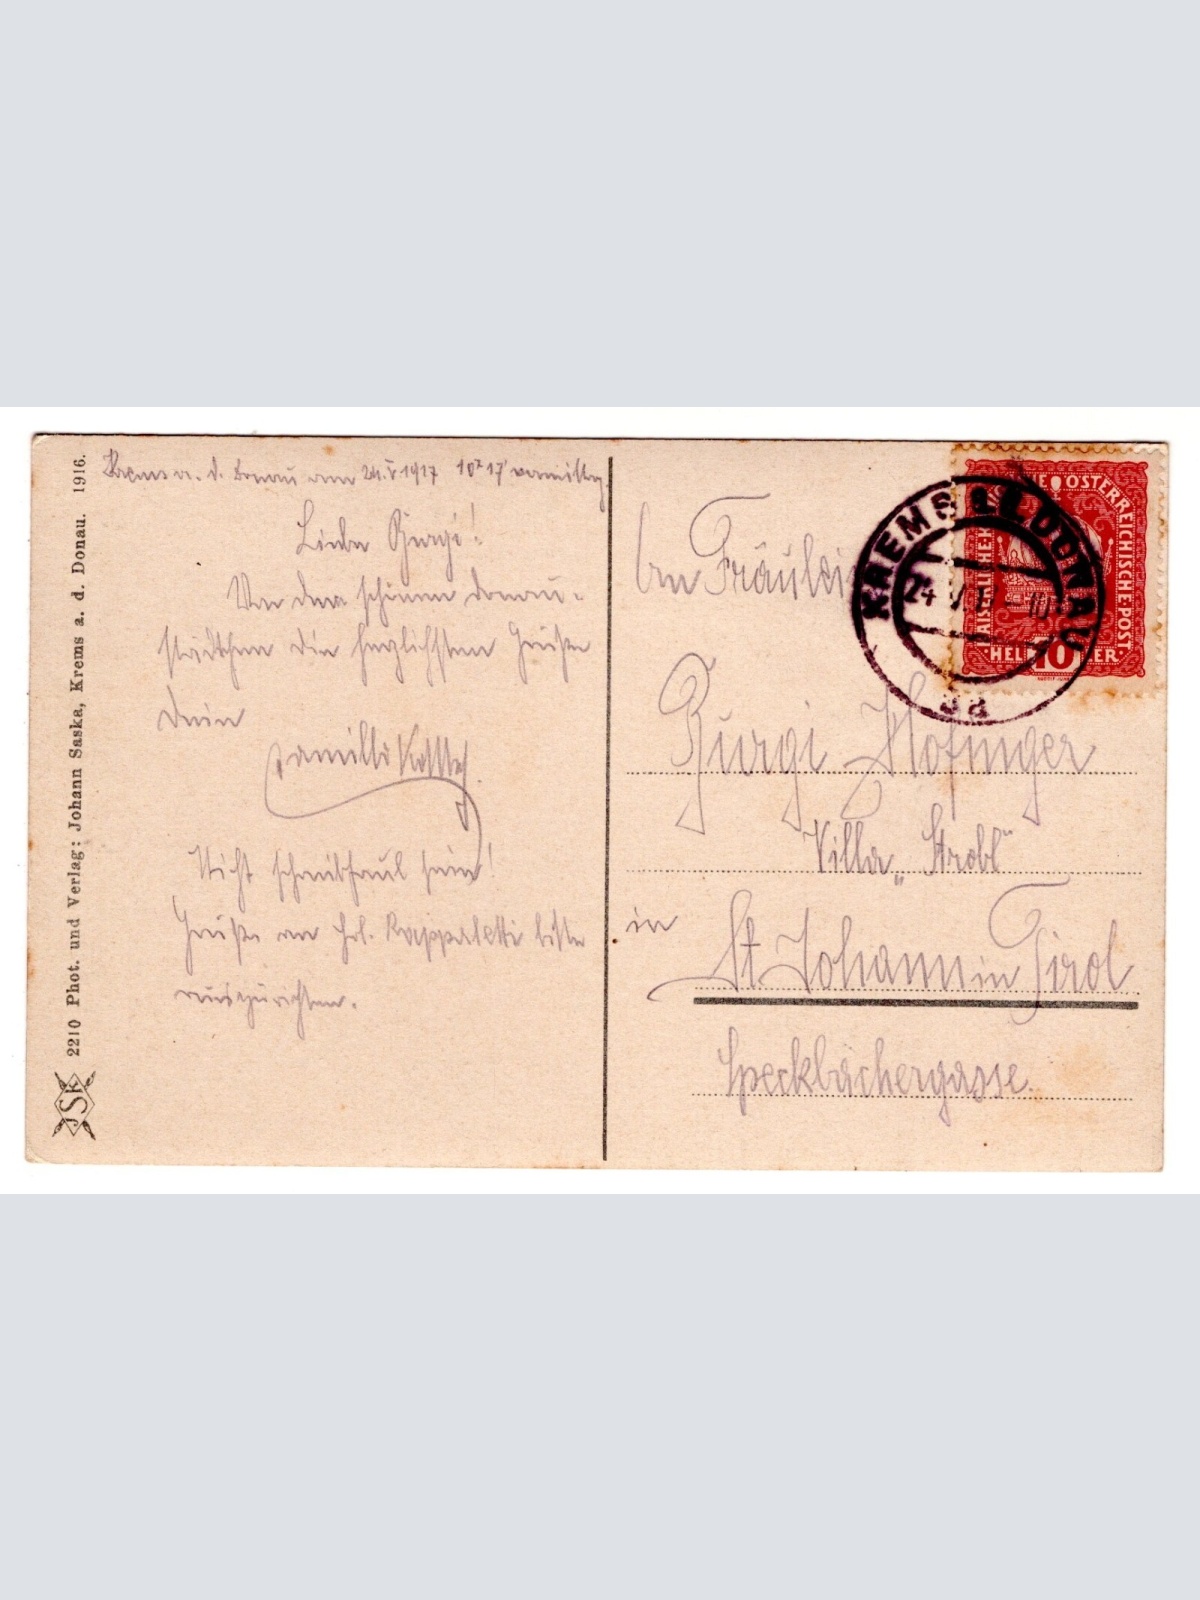 2210 Phot. und Verlag: Johann Saska, Krems a. d. Donau. 1916.
JSK
Krems a. d. Donau am 24.V.1917 10h 17' vormittag
Liebe Burgi!
Von dem schönen Donau-
städtchen die herzlichsten Grüße
Dein
Camillo
Nicht schreibfaul sein!
Grüße an Frl. Kappeletti bitte
auszurichten.
KREMS A.D. DONAU
24 V
3a
KAISERLICHE K ÖSTERREICHISCHE POST
HELLER 10
An Fräulein
Burgi Hofinger
Villa „Strobl"
in
St Johann in Tirol
Speckbachergasse.